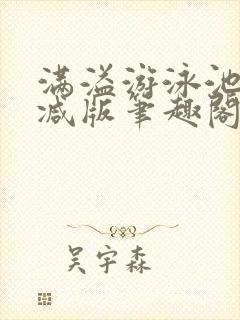 满溢游泳池
减版笔趣阁
吴宇森